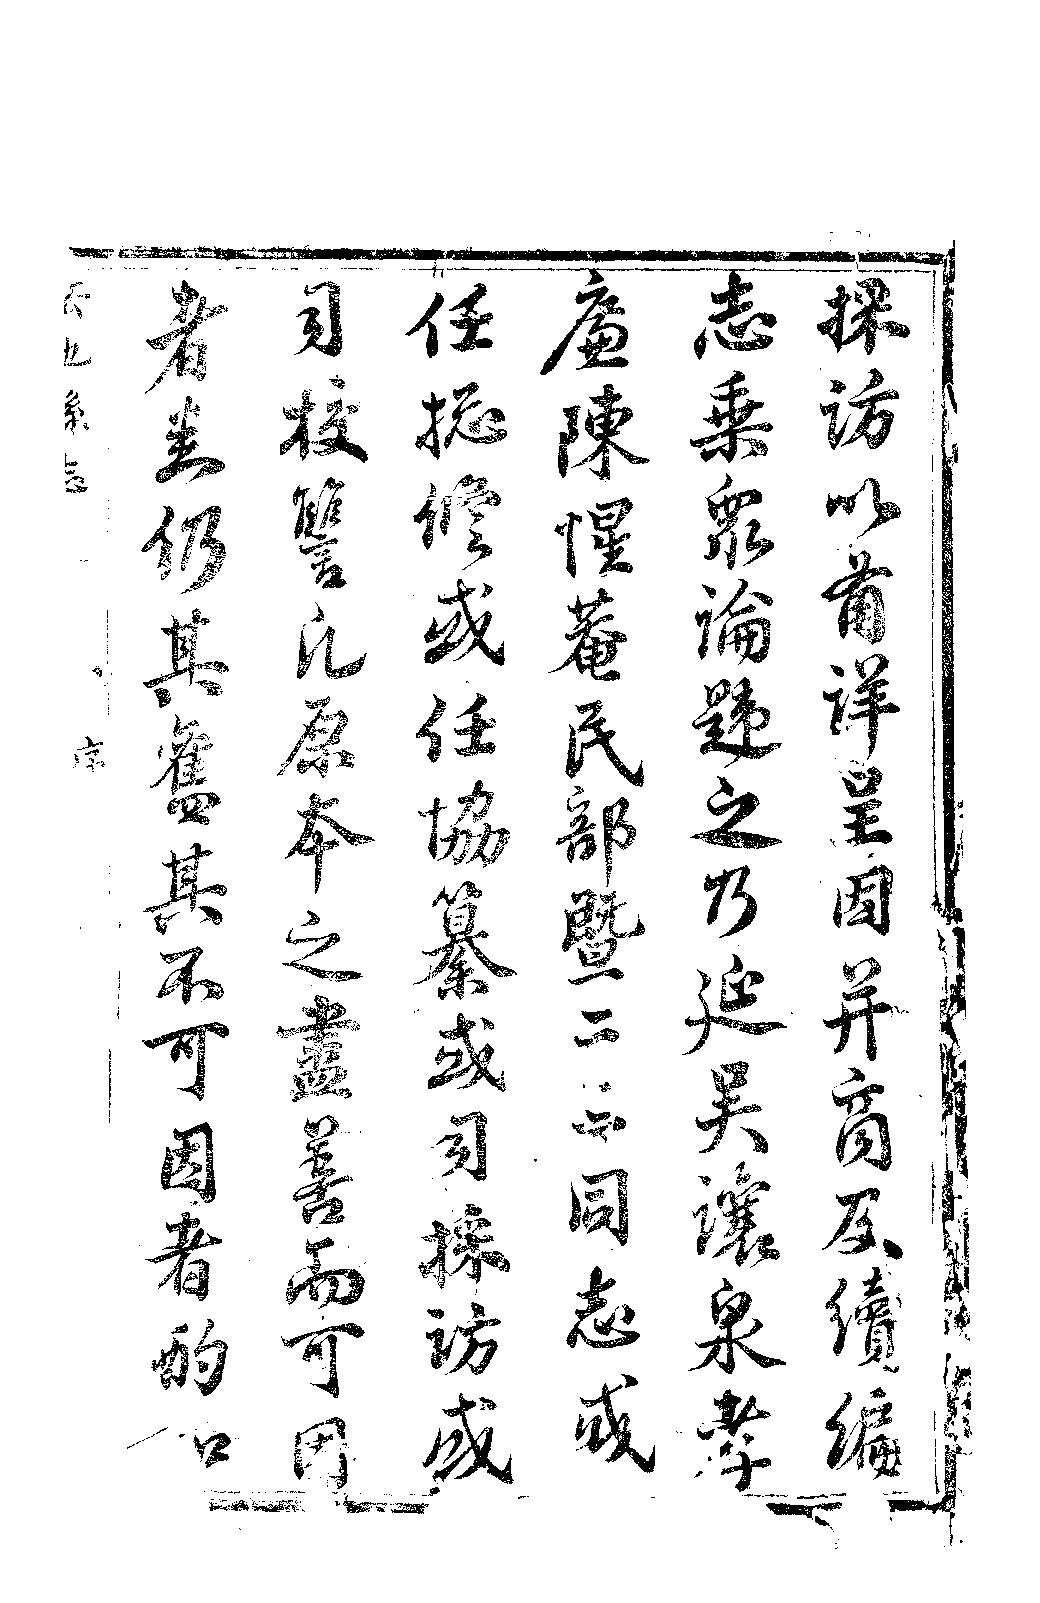 採訪以莆詳呈因并商及續編
志乘眾論韙之乃延吳讓泉孝
廉陳惺菴民部暨二三同志或
任摠修或任協纂或司採訪或
司校讐凡原本之盡善而可因
者差仍其舊其不可因者酌
序